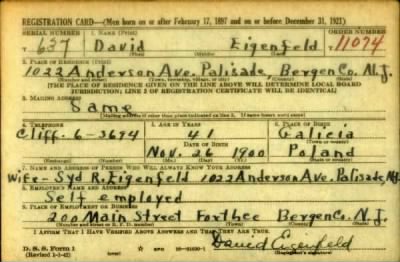 REGISTRATION CARD—(Men born on or after February 17, 1897 and on or before December 31, 1921)
SERIAL NUMBER 1. NAME (Print) ORDER NUMBER
T 637 David Eigenfeld 11074
(First) (Middle) (Last)
2. PLACE OF RESIDENCE (Print)
1022 Anderson Ave. Palisade, Bergen Co. N.J.
(Number and street) (Town, township, village, or city) (County) (State)
[THE PLACE OF RESIDENCE GIVEN ON THE LINE ABOVE WILL DETERMINE LOCAL BOARD
JURISDICTION; LINE 2 OF REGISTRATION CERTIFICATE WILL BE IDENTICAL]
3. MAILING ADDRESS
Same
[Mailing address if other than place indicated on line 2. If same insert word same]
4. TELEPHONE 5. AGE IN YEARS 6. PLACE OF BIRTH
Cliff. 6-3694 41 Galicia
DATE OF BIRTH (Town or county)
Nov. 26 1900 Poland
(Exchange) (Number) (Mo.) (Day) (Yr.) (State or country)
7. NAME AND ADDRESS OF PERSON WHO WILL ALWAYS KNOW YOUR ADDRESS
Wife- Syd R. Eigenfeld 1022 Anderson Ave. Palisade, NJ.
8. EMPLOYER'S NAME AND ADDRESS
Self employed
9. PLACE OF EMPLOYMENT OR BUSINESS
200 Main Street Fort Lee Bergen Co. N.J.
(Number and street or R. F. D. number) (Town) (County) (State)
I AFFIRM THAT I HAVE VERIFIED ABOVE ANSWERS AND THAT THEY ARE TRUE.
D. S. S. Form 1
(Revised 1-1-42)
David Eigenfeld